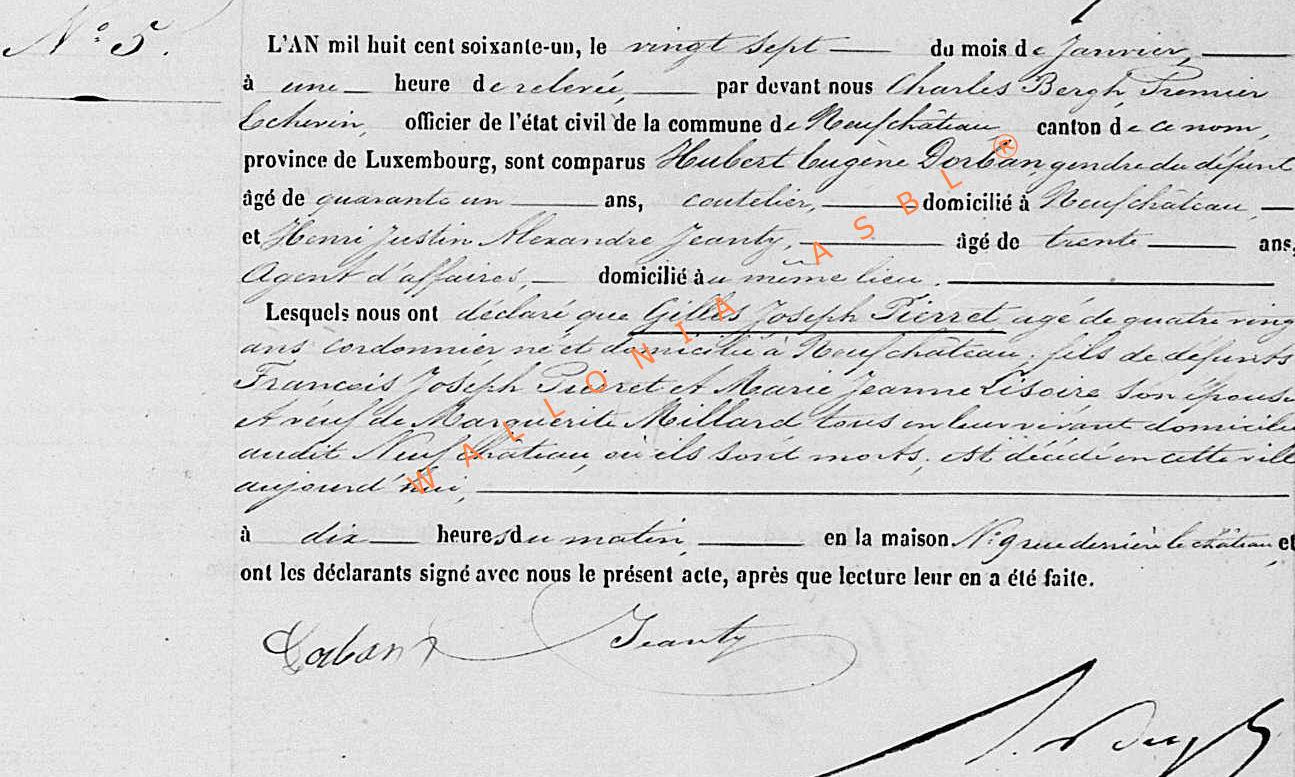 N° 5.
L'AN mil huit cent soixante-un, le vingt sept du mois de Janvier,
à une heure de relevée, par devant nous Charles Bergh, Premier
Echevin, officier de l'état civil de la commune de Neufchâteau canton de ce nom,
province de Luxembourg, sont comparus Hubert Eugène Dorban, gendre du défunt
âgé de quarante un ans, coutelier, domicilié à Neufchâteau,
et Henri Justin Alexandre Jeanty, âgé de trente ans,
Agent d'affaires, domicilié au même lieu.
Lesquels nous ont déclaré que Gilles Joseph Pierret agé de quatre ving
ans cordonnier né et domicilié à Neufchâteau, fils de défunts
Francois Joseph Pierret et Marie Jeanne Lisoire son épouse
et veuf de Marguerite Millard tous en leur vivant domicilié
audit Neufchâteau, où ils sont morts, est décédé en cette ville
aujourd'hui,
à dix heures du matin, en la maison N° 9 rue derrière le château, et
ont les déclarants signé avec nous le présent acte, après que lecture leur en a été faite.
Dorban Jeanty
WALLONIA ASBL ®